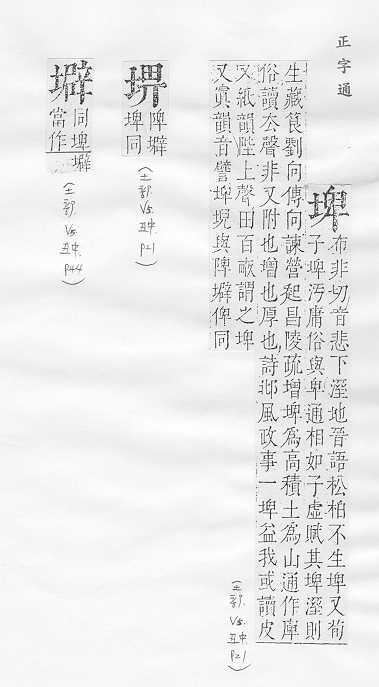 正字通
埤 布非切音悲下溼地晉語松柏不生埤又荀
子埤汚庸俗與卑通相如子虛賦其埤溼則
生藏莨劉向傳向諫營起昌陵疏增埤爲高積土爲山通作庳
俗讀厺聲非又附也增也厚也詩邶風政事一埤益我或讀皮
又紙韻陛上聲田百畝謂之埤
又寘韻音譬埤堄與陴壀俾同
(土部 Vs. 丑中 P21)
陴壀
埤同
(土部 Vs. 丑中 P21)
壀 同埤壀
當作
(土部 Vs. 丑中 P44)